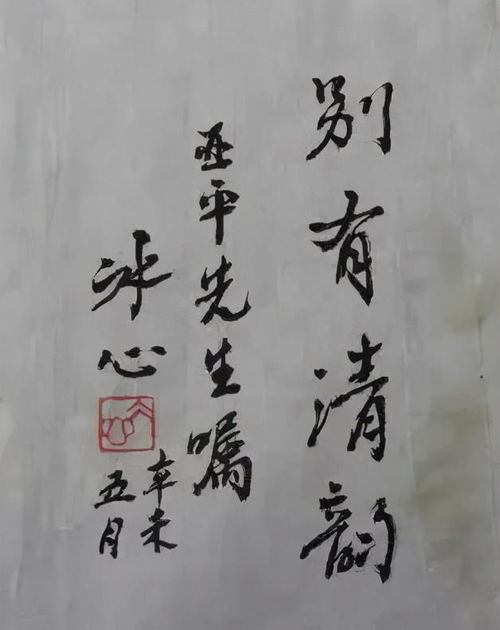 别有清韵
亚平先生嘱
冰心
辛未
五月